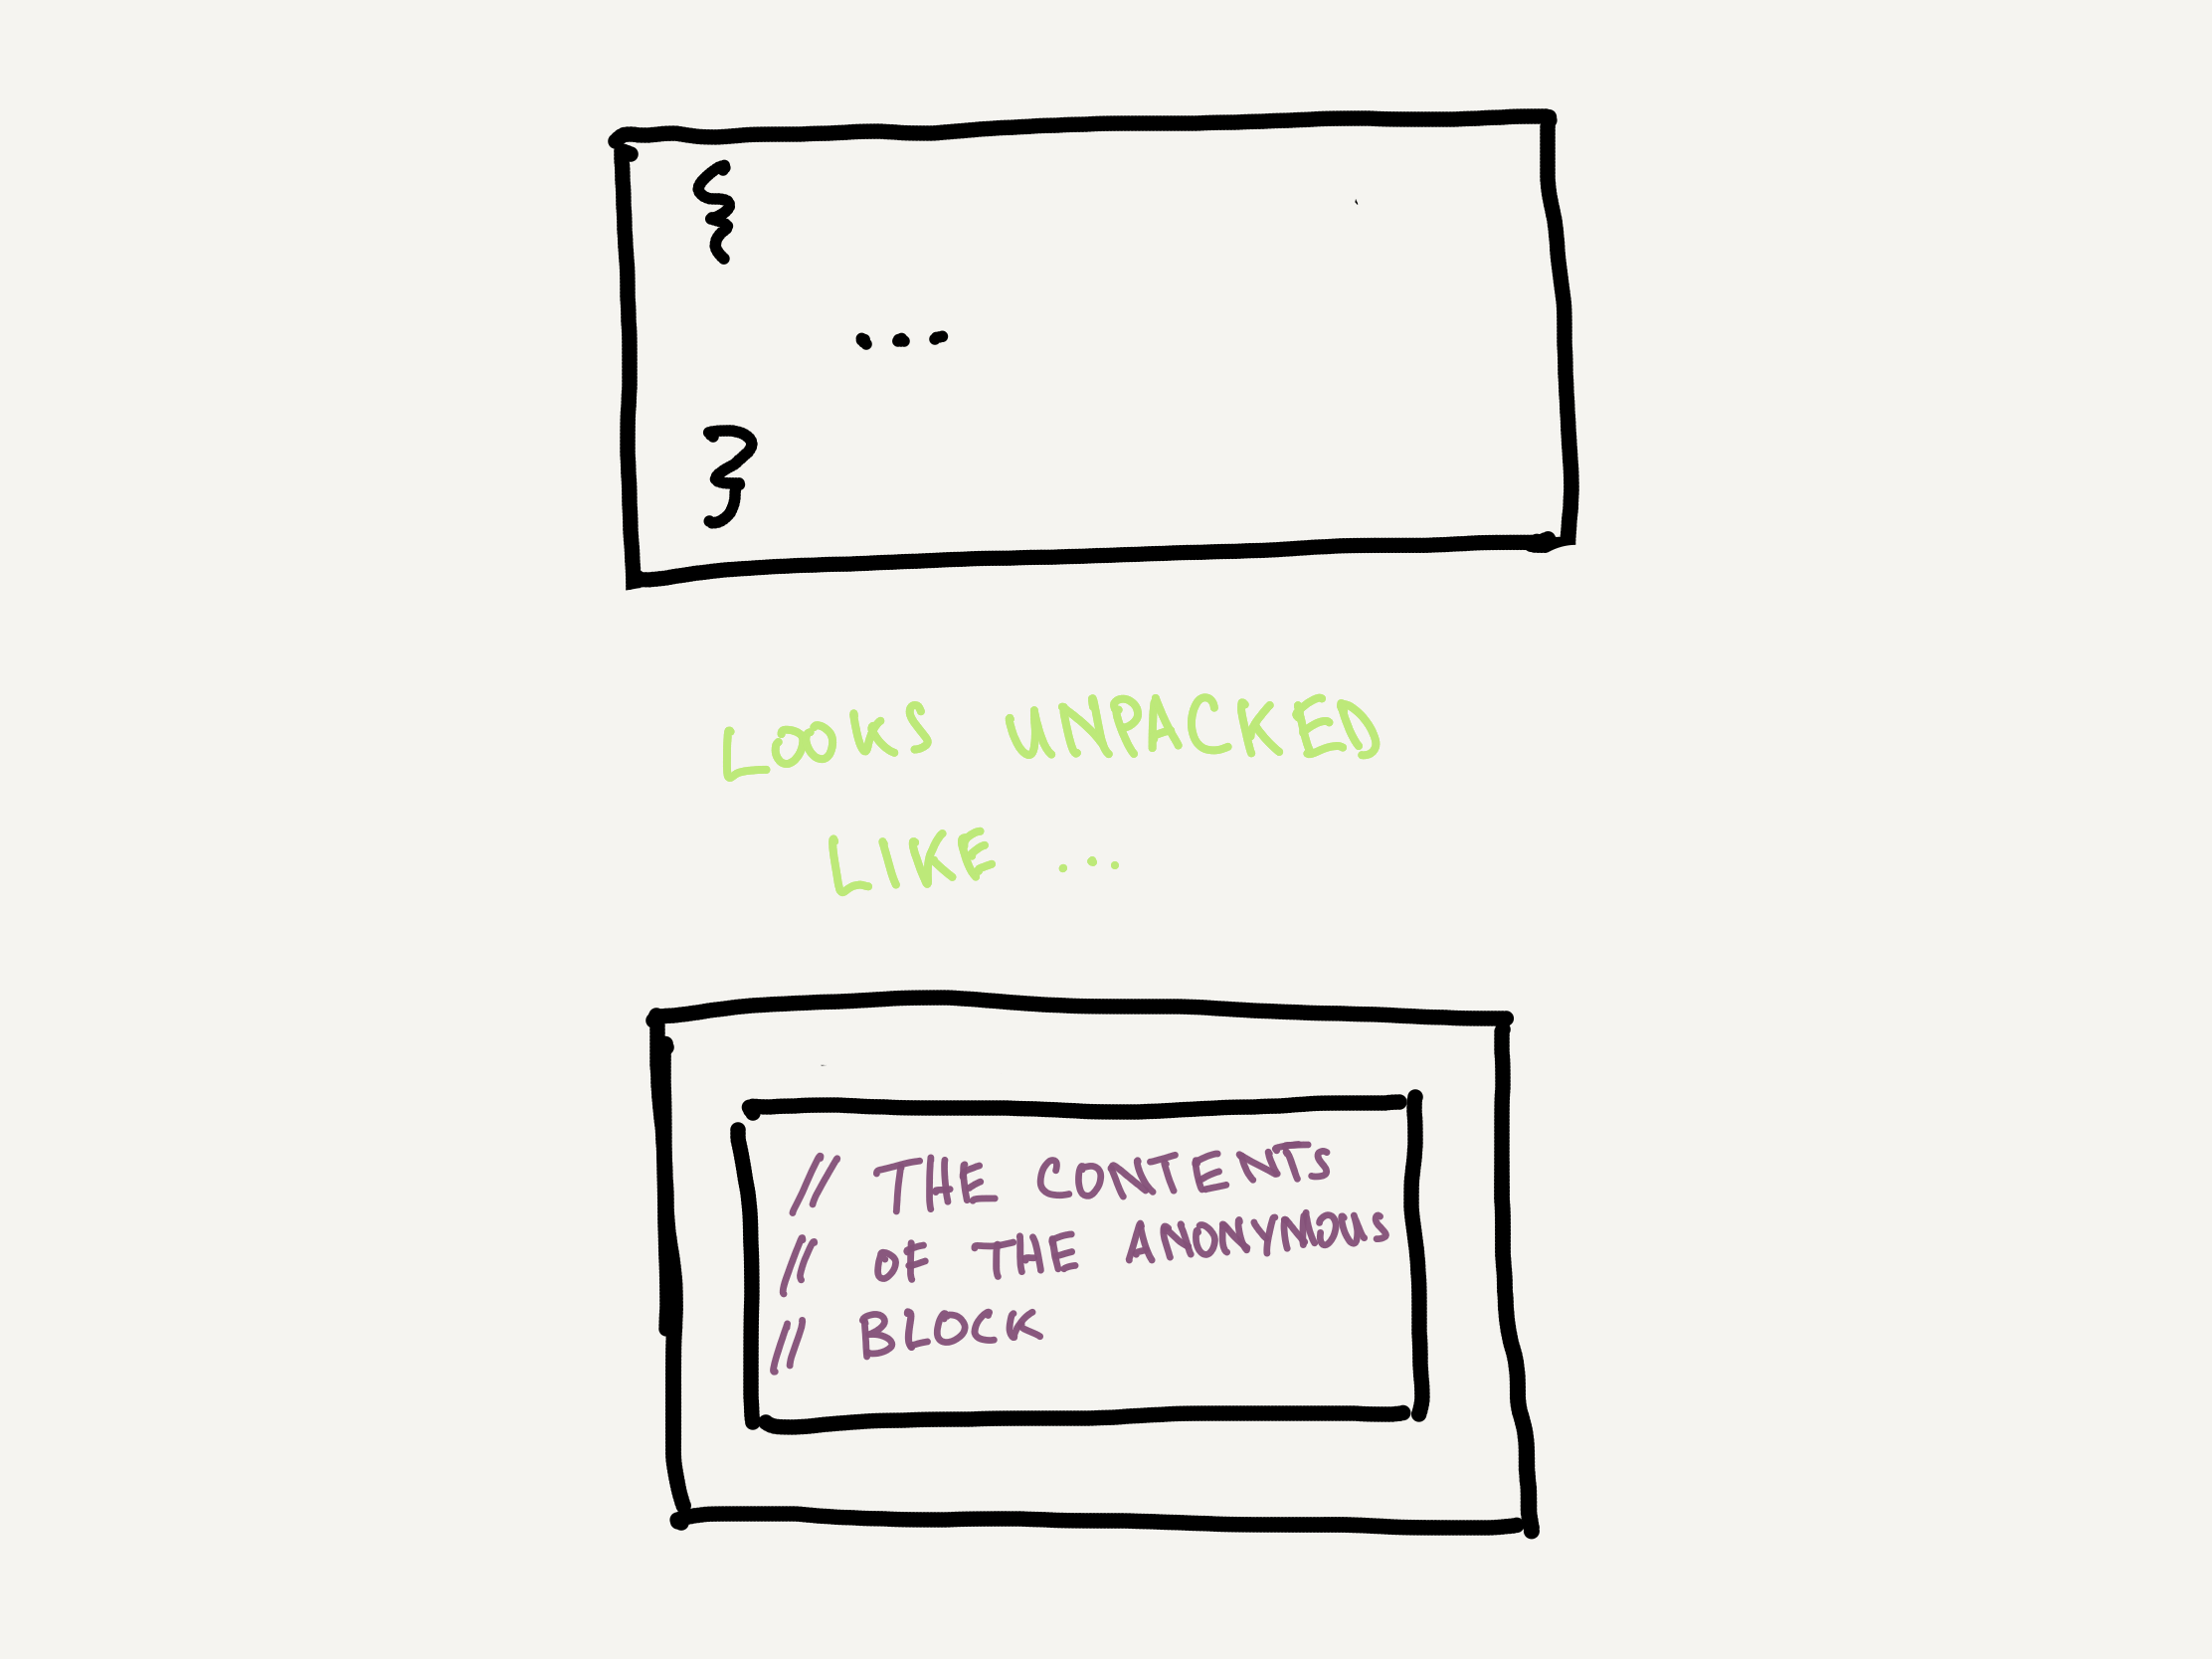 {
...
}
LOOKS UNPACKED
LIKE ...
// THE CONTENTS
// OF THE ANONYMOUS
// BLOCK